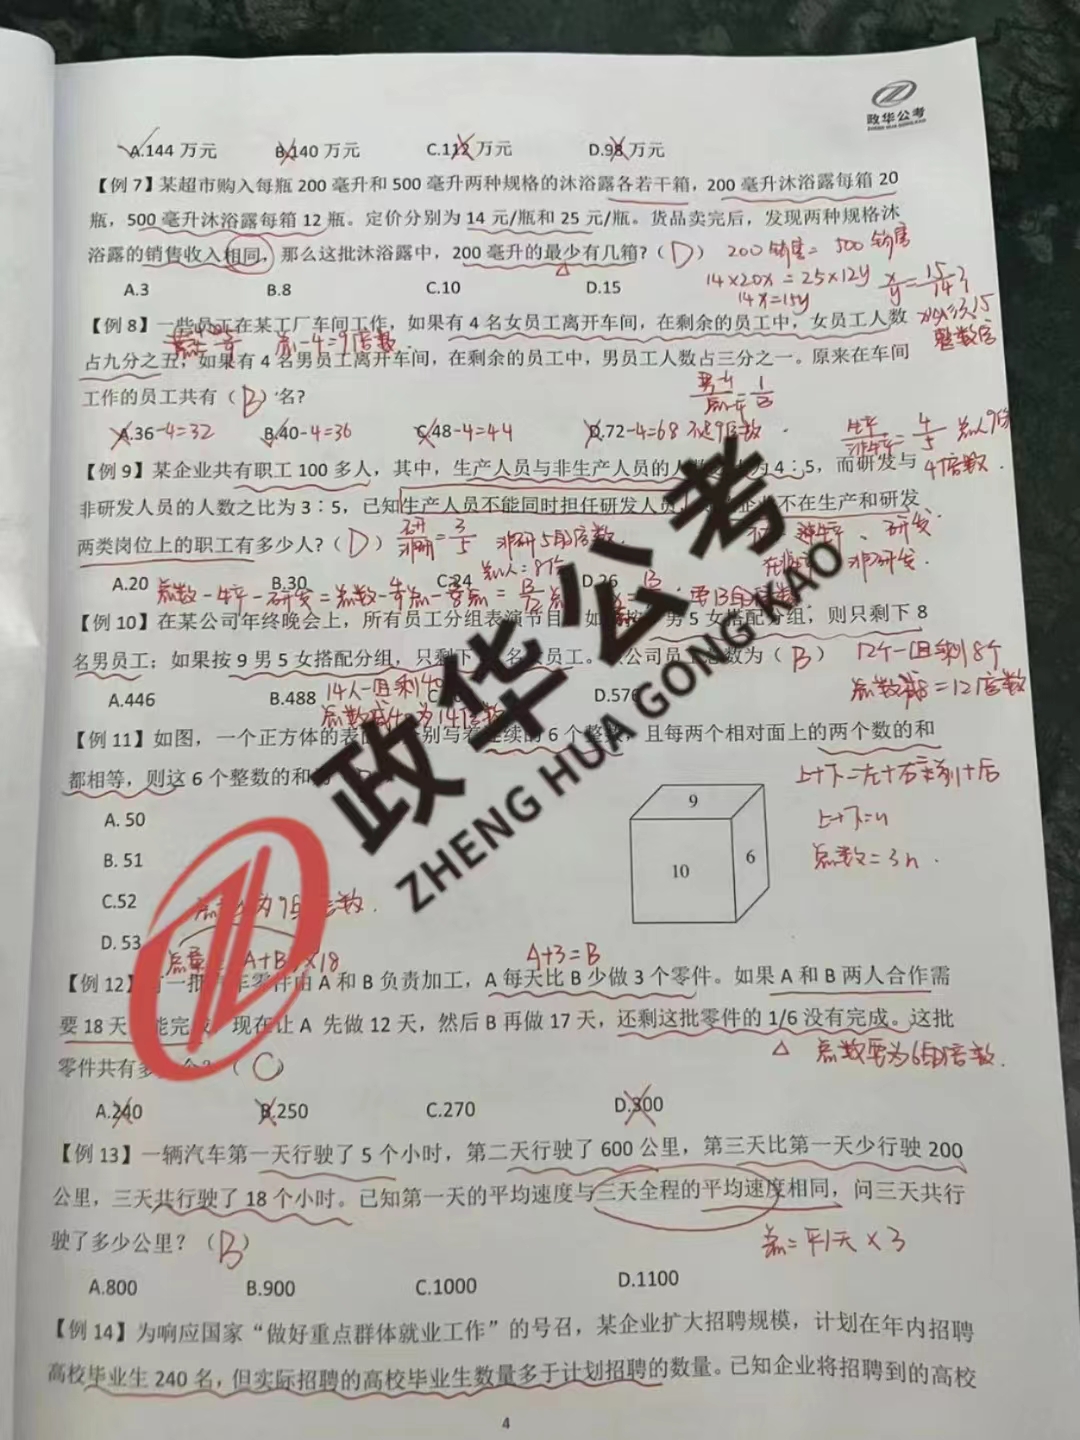 政华公考
A.144 万元 B.140 万元 C.112 万元 D.98 万元
【例 7】某超市购入每瓶 200 毫升和 500 毫升两种规格的沐浴露各若干箱，200 毫升沐浴露每箱 20
瓶，500 毫升沐浴露每箱 12 瓶。定价分别为 14 元/瓶和 25 元/瓶。货品卖完后，发现两种规格沐
浴露的销售收入相同，那么这批沐浴露中，200 毫升的最少有几箱?（D） 200销售=500销售
14×20x=25×12y x/y=15/14
14x=15y
A.3 B.8 C.10 D.15
【例 8】一些员工在某工厂车间工作，如果有 4 名女员工离开车间，在剩余的员工中，女员工人数
整数倍
总-4=9倍数.
占九分之五，如果有 4 名男员工离开车间，在剩余的员工中，男员工人数占三分之一。原来在车间
工作的员工共有（B）名?
男-4/总-4=1/3
A.36-4=32 B.40-4=36 C.48-4=44 D.72-4=68 不是9倍数
生产/非生产=4/5 总人9份
【例 9】某企业共有职工 100 多人，其中，生产人员与非生产人员的人数 为 4∶5，而研发与
4倍数.
非研发人员的人数之比为 3∶5，已知生产人员不能同时担任研发人员 不在生产和研发
两类岗位上的职工有多少人?（D） 研/非研=3/5 非研5的倍数.
非研发.
A.20 B.30 C.24 D.26
总数-生产-研发=总数-
【例 10】在某公司年终晚会上，所有员工分组表演节目 男 5 女搭配分组，则只剩下 8
名男员工；如果按 9 男 5 女搭配分组，只剩下 公司员工总数为（B） 12个一组剩8个
A.446 B.488 D.576 总数减8=12倍数
14人一组剩4
总数减4为14倍数
【例 11】如图，一个正方体的表 别写着连续的 6 个整数，且每两个相对面上的两个数的和
都相等，则这 6 个整数的和
上+下=左+右=前+后
A. 50 上+下=n
B. 51 总数=3n.
C.52
D. 53
9
10
6
A+B ×18 A+3=B
【例 12】 零件由 A 和 B 负责加工，A 每天比 B 少做 3 个零件。如果 A 和 B 两人合作需
要 18 天 能完成 现在让 A 先做 12 天，然后 B 再做 17 天，还剩这批零件的 1/6 没有完成。这批
零件共有多 （C） 总数要为6的倍数.
A.240 B.250 C.270 D.300
【例 13】一辆汽车第一天行驶了 5 个小时，第二天行驶了 600 公里，第三天比第一天少行驶 200
公里，三天共行驶了 18 个小时。已知第一天的平均速度与三天全程的平均速度相同，问三天共行
驶了多少公里？（B） 总=平1天×3
A.800 B.900 C.1000 D.1100
【例 14】为响应国家“做好重点群体就业工作”的号召，某企业扩大招聘规模，计划在年内招聘
高校毕业生 240 名，但实际招聘的高校毕业生数量多于计划招聘的数量。已知企业将招聘到的高校
4
政华公考
ZHENG HUA GONG KAO